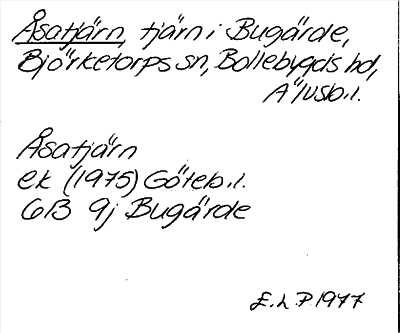 Åsatjärn, tjärn i Bugärde,
Björketorps sn, Bollebygds hd,
Älvsb.l.
Åsatjärn
ek (1975) Göteb.l.
6B 9j Bugärde
E.L.P. 1977